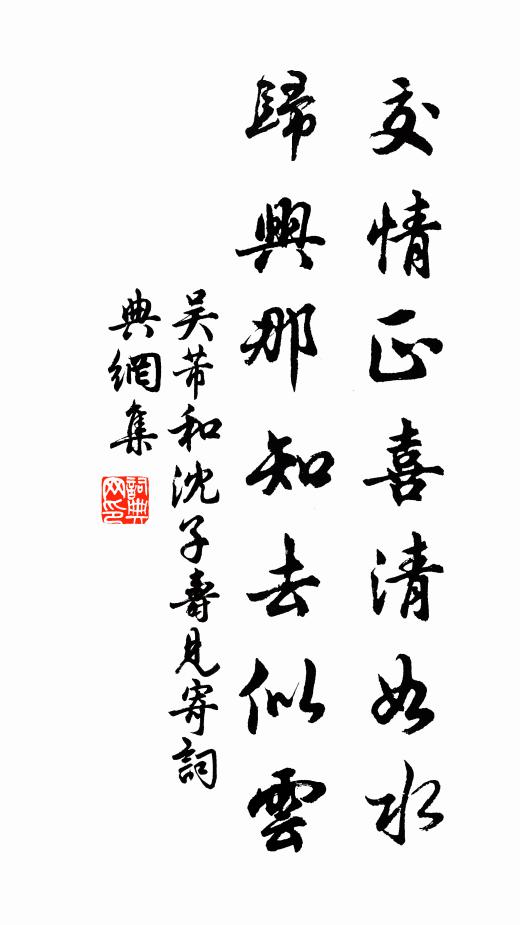 交情正喜清如水
歸興那知去似雲
吴芾和沈子壽見寄詞
典網集
詞典网印